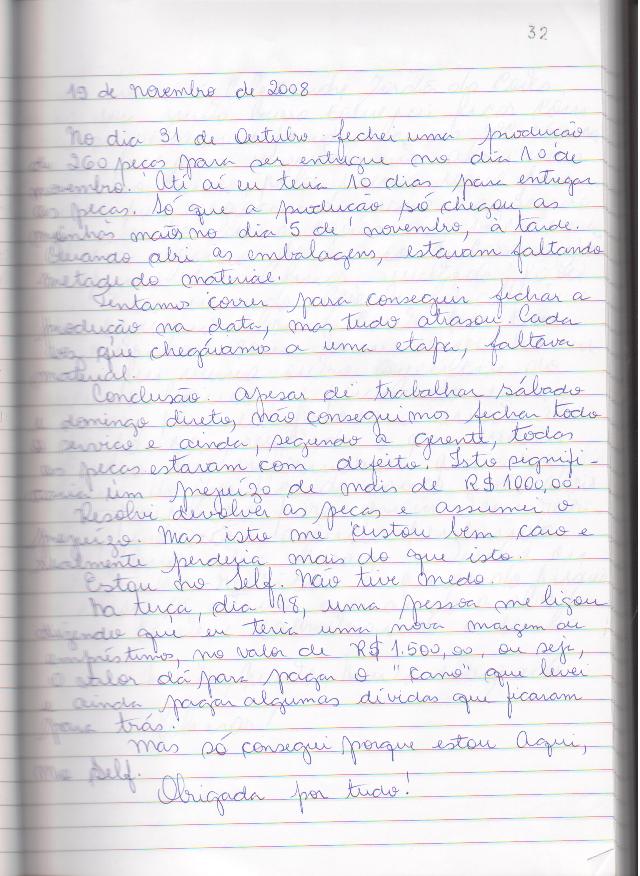 32
19 de novembro de 2008
No dia 31 de outubro fechei uma produção
de 260 peças para ser entregue no dia 10 de
novembro. Até aí eu teria 10 dias para entregar
as peças. Só que a produção só chegou as
minhas mãos no dia 5 de novembro, à tarde.
Quando abri as embalagens, estavam faltando
metade do material.
Tentamos correr para conseguir fechar a
produção na data, mas tudo atrasou. Cada
vez que chegávamos a uma etapa, faltava
material.
Conclusão: apesar de trabalhar sábado
e domingo direto, não conseguimos fechar todo
o serviço e ainda, segundo a gerente, todas
as peças estavam com defeito. Isto signifi-
caria um prejuízo de mais de R$ 1000,00.
Resolvi devolver as peças e assumi o
prejuízo. Mas isto me custou bem caro e
realmente perderia mais do que isto.
Estou no Self. Não tive medo.
Na terça, dia 18, uma pessoa me ligou
dizendo que eu teria uma nova margem de
empréstimos, no valor de R$ 1.500,00, ou seja,
o valor dá para pagar o "cano" que levei
e ainda pagar algumas dívidas que ficaram
para trás.
Mas só consegui porque estou Aqui,
no Self.
Obrigada por tudo!